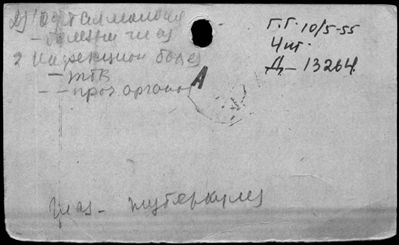 1) Офталмология
- болезни глаз
2 Инфекцион болез
- ТБ
- - проч. органов
Г.Г. 10/5-55
4 шт.
Д - 13264
А
Глаз - туберкулез